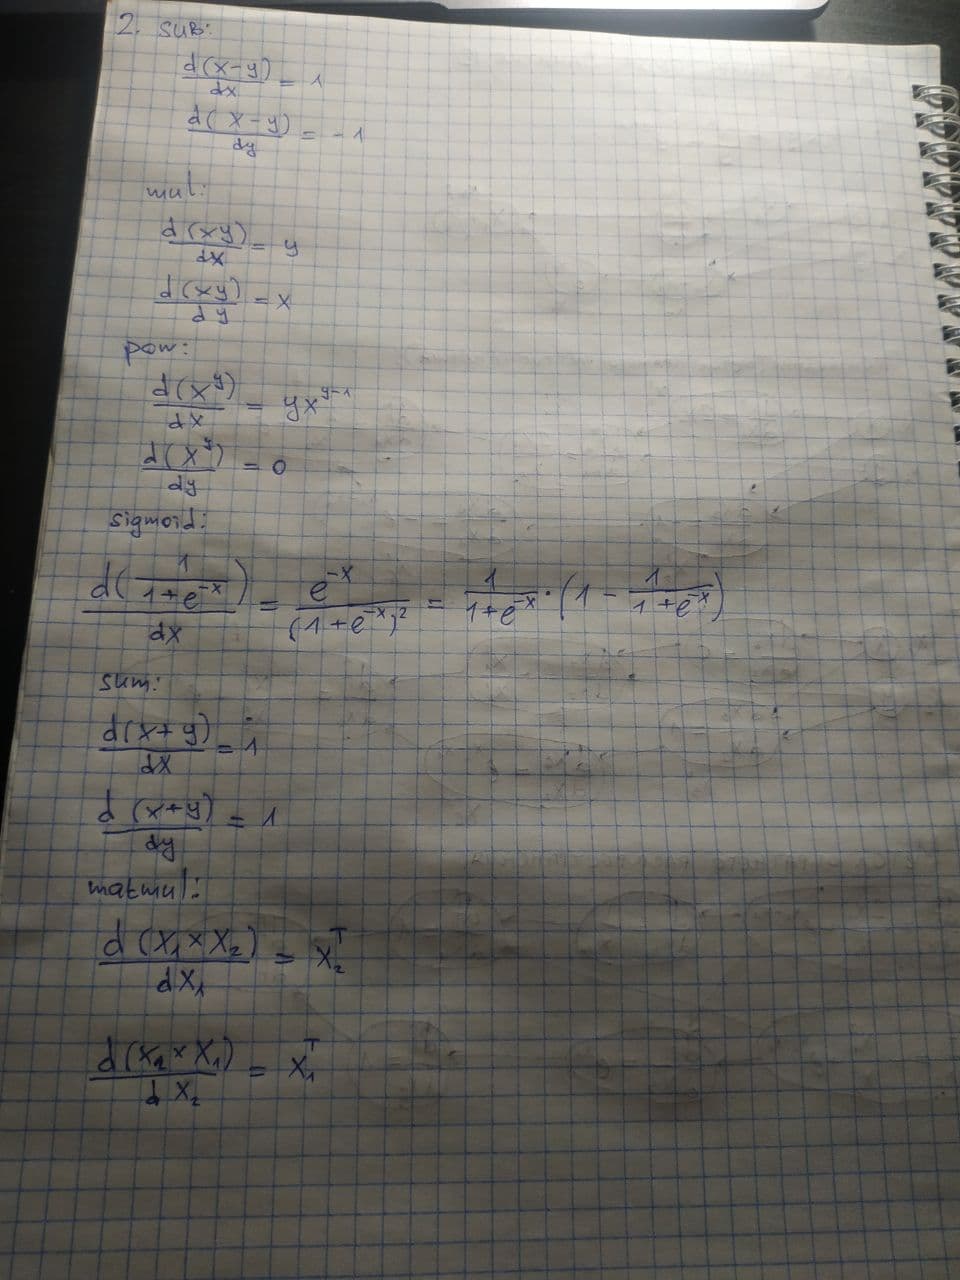 2. SUB:
d(x-y)/dx = 1
d(x-y)/dy = -1
mul:
d(xy)/dx = y
d(xy)/dy = x
pow:
d(x^y)/dx = yx^(y-1)
d(x^y)/dy = 0
sigmoid:
d(1/(1+e^-x))/dx = e^-x/(1+e^-x)^2 = 1/(1+e^-x) · (1 - 1/(1+e^-x))
sum:
d(x+y)/dx = 1
d(x+y)/dy = 1
matmul:
d(X₁×X₂)/dX₁ = X₂^T
d(X₂×X₁)/dX₂ = X₁^T